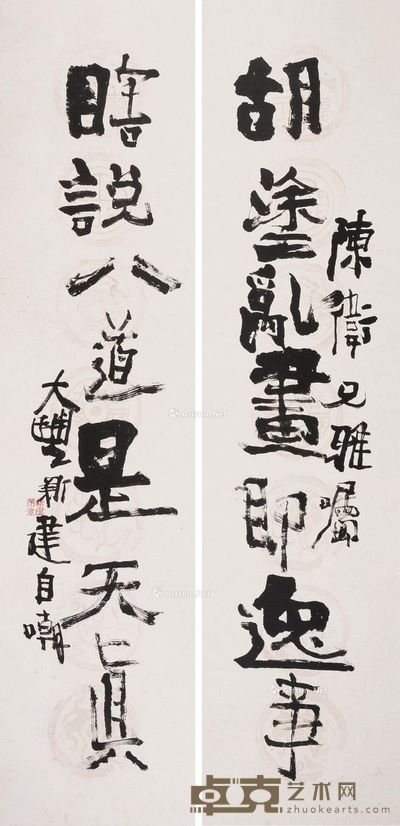 胡塗亂畫即逸事
陳衛兄雅囑
瞎說八道是天真
大豐新建自嘲
卓克艺术网
zhuokearts.com